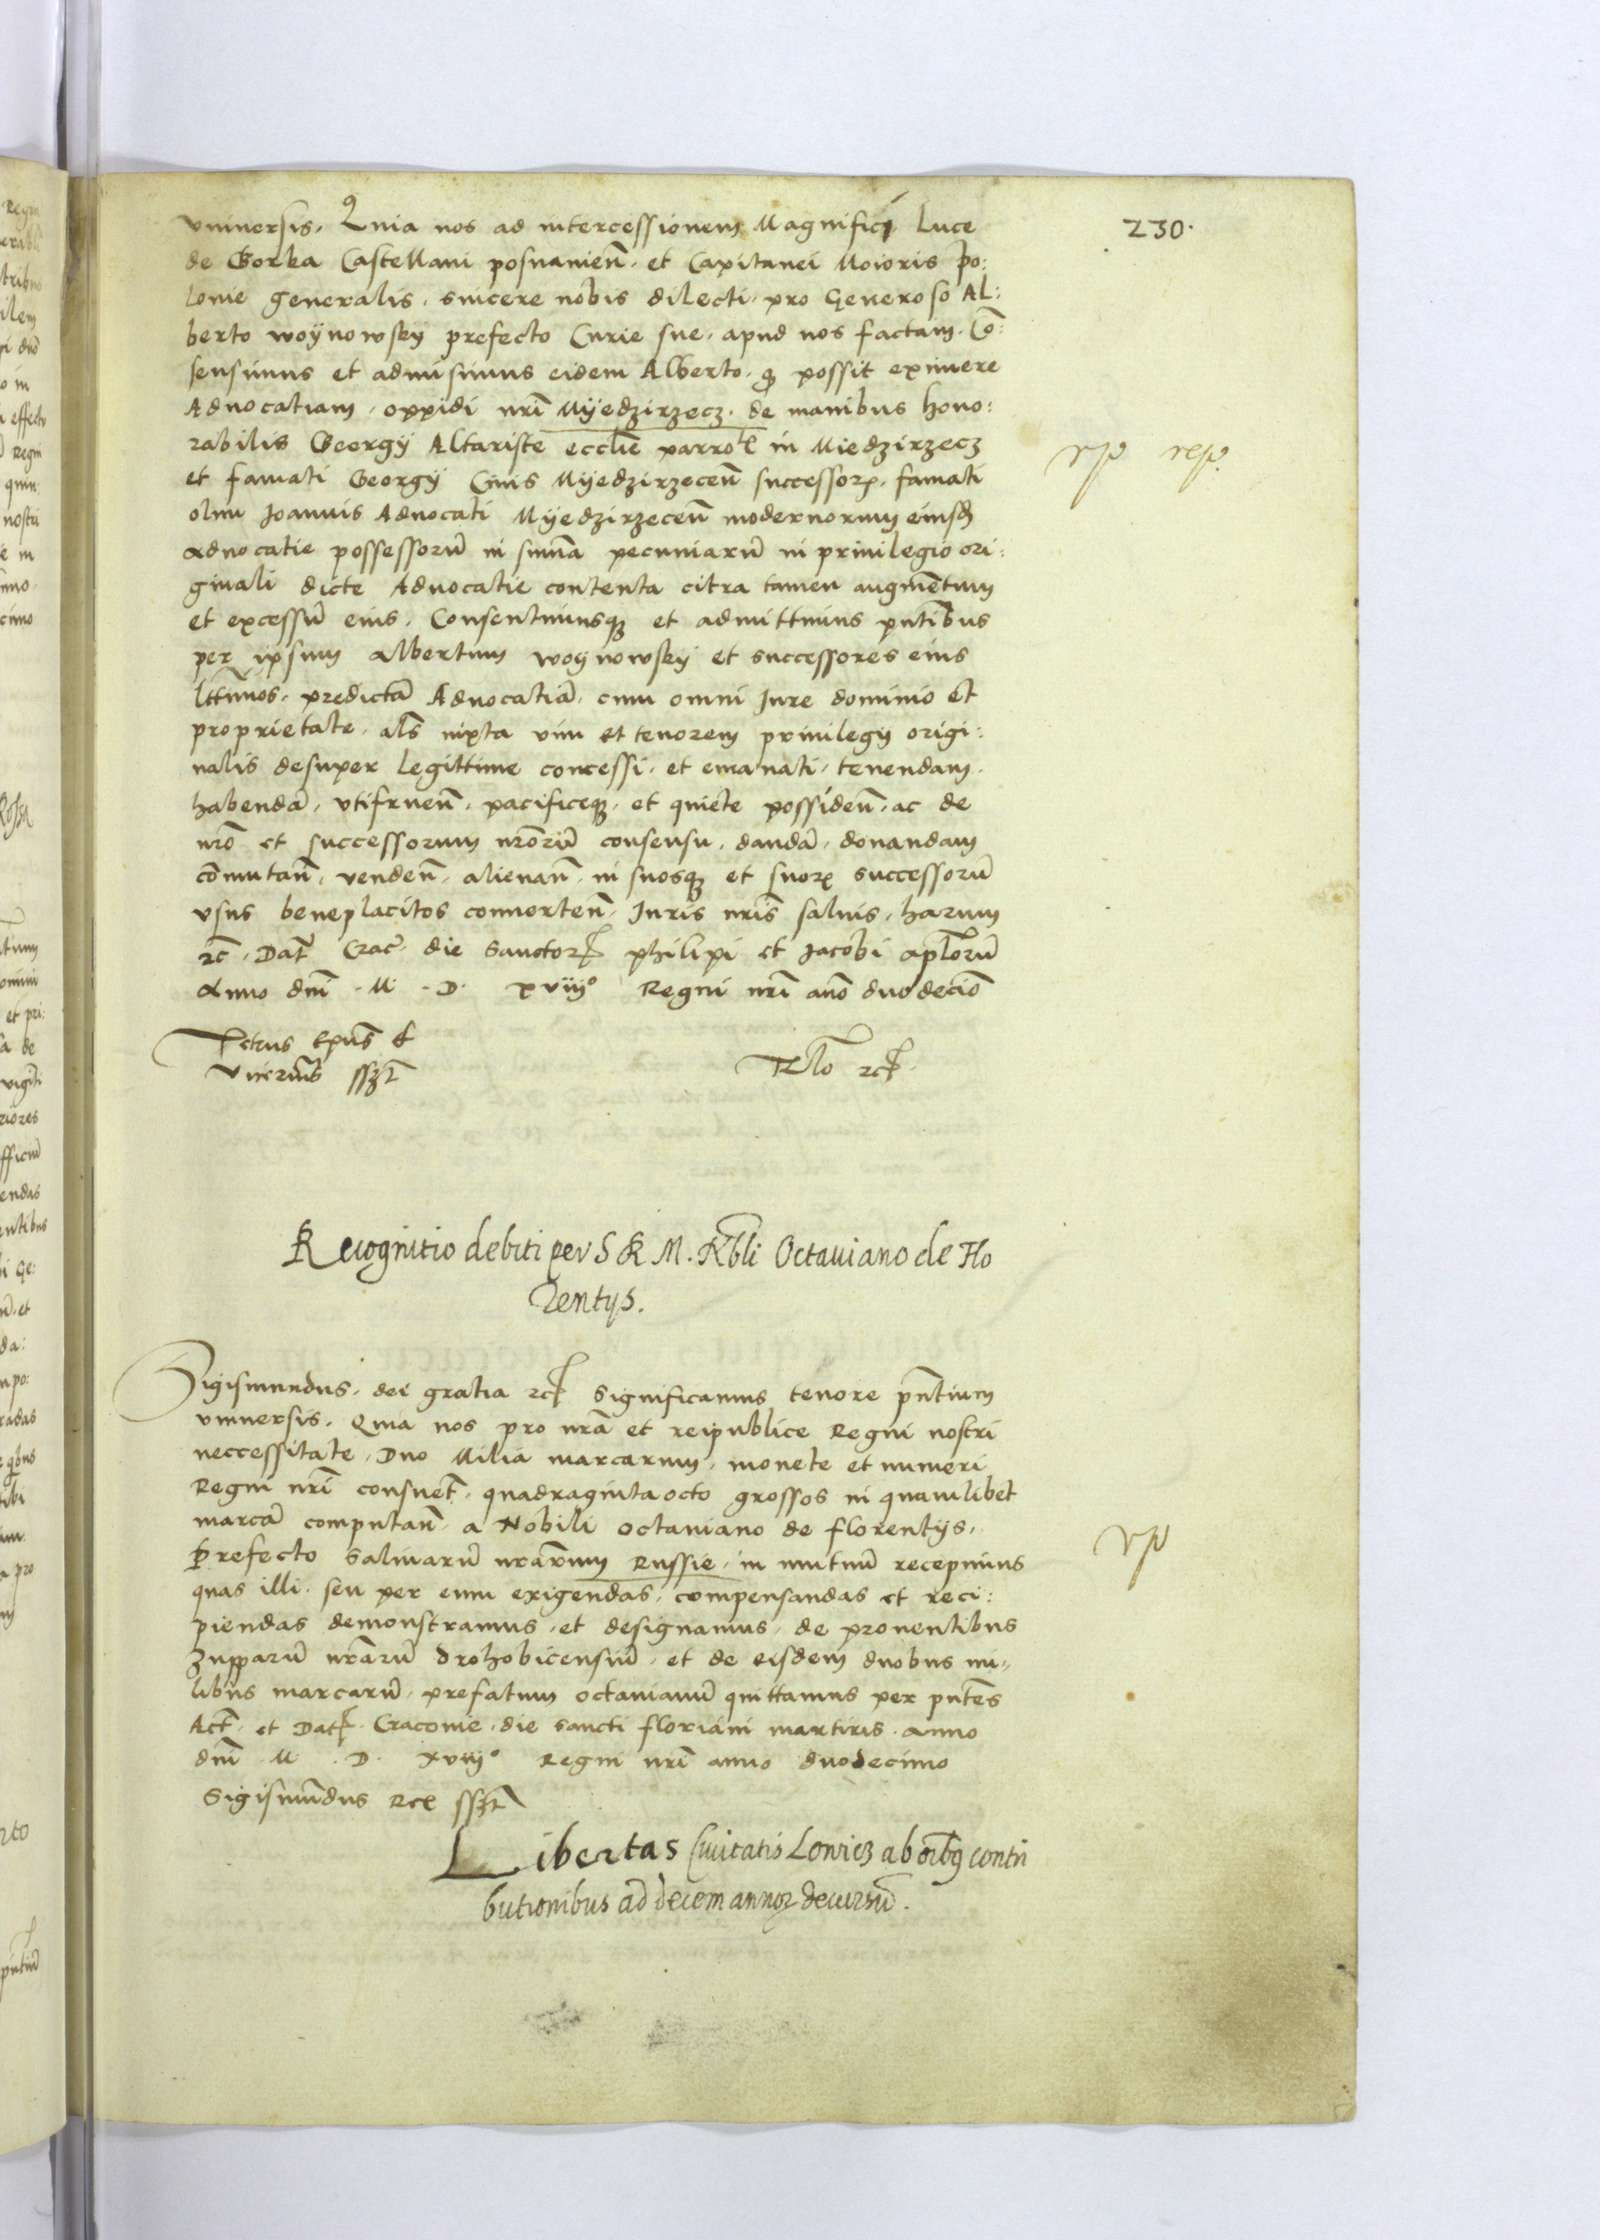 230.
vniuersis. Quia nos ad intercessionem Magnifici Luce
de Gorka Castellani posnanieñ. et Capitanei Moioris po:
lonie generalis. sincere nobis dilecti. pro Generoso Al:
berto woynowsky prefecto Curie sue. apud nos factam. Cõ:
sensimus et admisimus eidem Alberto. qȝ possit eximere
Aduocatiam. oppidi nr̃i Myedzirzecz. de manibus hono:
rabilis Georgij Altariste eccliẽ parroł in Miedzirzecz
et famati Georgij Ciuis Myedzirzeceñ successorꝝ. famati
olim Joannis Aduocati Myedzirzeceñ modernorum eiusd̃
aduocatie possessorũ in sum̃a pecuniarũ in priuilegio ori:
ginali dicte Aduocatie contenta citra tamen augmẽtum
et excessũ eius. Consentimusqȝ et admittimus pñtibus
per ipsum albertum woynowsky et successores eius
lttimos. predictã Aduocatiã. cum omni Jure dominio et
proprietate. als̃ iuxta vim et tenorem priuilegij origi:
nalis desuper legittime concessi. et emanati. tenendam.
habendã. vtifrueñ. pacificeqȝ. et quiete possideñ. ac de
nrõ et successorum nrõrũ consensu. dandã. donandam
cõmutañ. vendeñ. alienañ. in suosqȝ et suorꝝ successorũ
vsus beneplacitos conuerteñ. Juris nr̃is saluis. harum
rc̃. Dat̃ Crac̃. die Sanctorꝝ philipi et Jacobi aplorũ
Anno dñi. M. D. xviijº Regni nr̃i año duodecio
Petrus Epũs &
Vicecanc̃s sszt
Rlo rcꝭ
vsp resp.
Recognitio debiti per S R M. Nbli Octauiano de Flo
rentijs.
Sigismundus. dei gratia rcꝭ Significamus tenore pñtium
vniuersis. Quia nos pro nrã et reipublice Regni nostri
neccessitate. Duo Milia marcarum. monete et numeri
Regni nr̃i consuet̃. quadraginta octo grossos in quamlibet
marcã computañ. a Nobili octauiano de florentijs.
Prefecto salinarũ nrãrum Russie. in mutuũ recepimus
quas illi. seu per eum exigendas. compensandas et reci:
piendas demonstramus. et designamus. de prouentibus
zupparũ nrãrũ drohobicensiũ. et de eisdem duobus mi„
libus marcarũ. prefatum octauianũ quittamus per pñtes
Act̃. et Datꝭ. Cracouie. die sancti floriani martiris. anno
dñi M. D. xviijº Regni nr̃i anno duodecimo
Sigismũdus Rex sszt
vsp
Libertas Ciuitatis Lowicz ab oĩbȝ contri
butionibus ad decem annorꝝ decursũ.